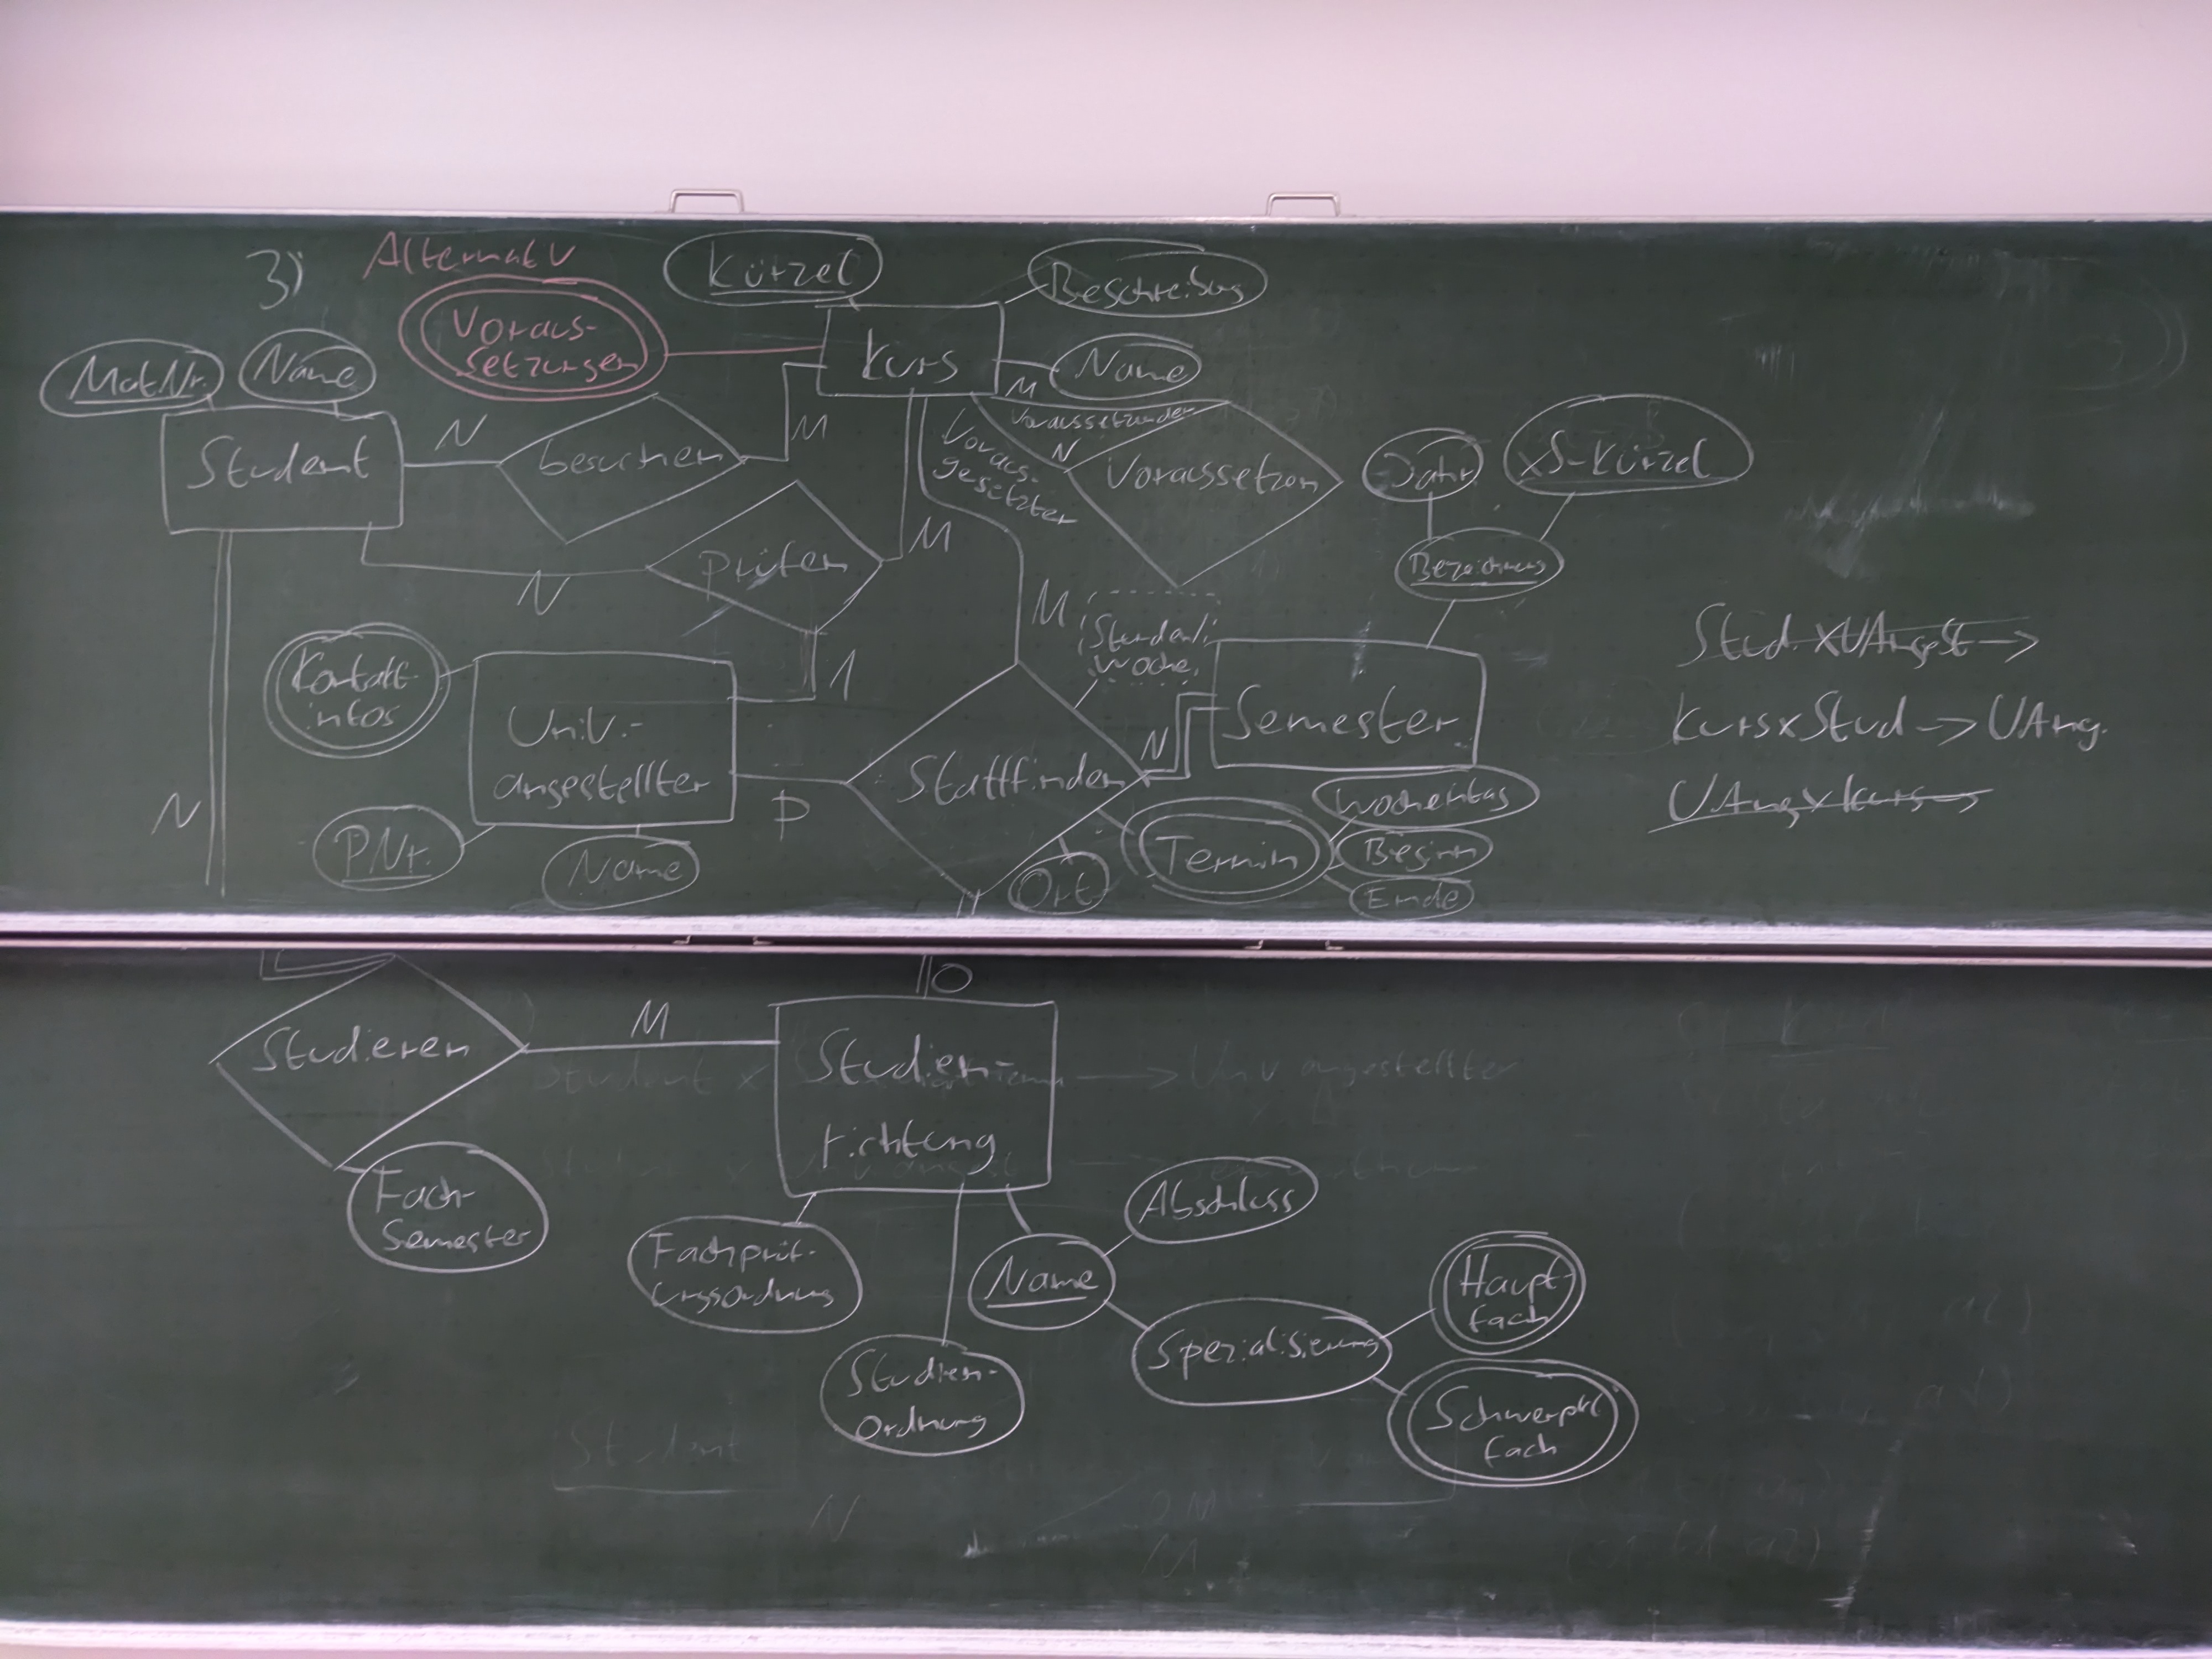 3)
Alternativ
Voraus-
setzungen
Kürzel
Beschreibung
Kurs
Name
Mat.Nr.
Name
Student
N
besuchen
M
M
Voraussetzender
N
Voraus-
gesetzter
Voraussetzen
Jahr
xS-Kürzel
Bezeichnung
Prüfen
M
N
1
M
Stunden/
Woche
Kontakt-
infos
Univ.-
angestellter
P
PNr.
Name
Stattfinden
N
Semester
Wochentag
Termin
Beginn
Ende
Ort
N
Stud x UAngest ->
Kurs x Stud -> UAng.
UAng x Kurs ->
O
Studieren
M
Studien-
richtung
Fach-
Semester
Fachprüf-
ungsordnung
Studien-
Ordnung
Name
Abschluss
Spezialisierung
Haupt-
fach
Schwerpkt
fach
Student
N